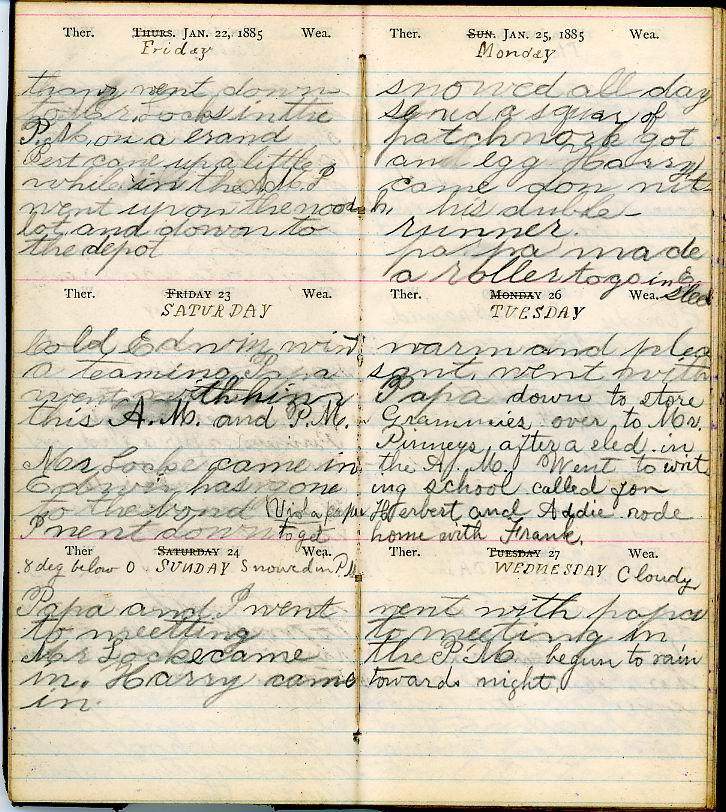 Ther. THURS. JAN. 22, 1885 Wea.
Friday
went down
to Mr. Locks in the
P.M. on a erand
Bert came up a little
while in the A.M. P
went up on the wood
lot and down to
the depot
Ther. FRIDAY 23 Wea.
SATURDAY
Cold Edwin
a teaming Papa
went with him
this A.M. and P.M.
Mr Locke came in
Edwin has gone
to the bond
to get
P went down
Ther SATURDAY 24 Wea.
8 deg below 0 SUNDAY Snowed in P.M.
Papa and I went
to meetting
Mr Locke came
in. Harry came
in.
Ther. SUN. JAN. 25, 1885 Wea.
Monday
snowed all day
sewed a squar of
patchwork got
an egg Harry
came don wit
h, his duble
runner.
papa made
a roller to go in E
sled
Ther. MONDAY 26 Wea.
TUESDAY
warm and plea
sant. went with
Papa down to store
Grammies over to Mr.
Pinneys after a sled in
the A.M. Went to writ
ing school called for
Herbert and Addie rode
home with Frank.
Ther. TUESDAY 27 Wea.
WEDNESDAY Cloudy
went with papa
to meeting in
the P.M. begun to rain
towards night.